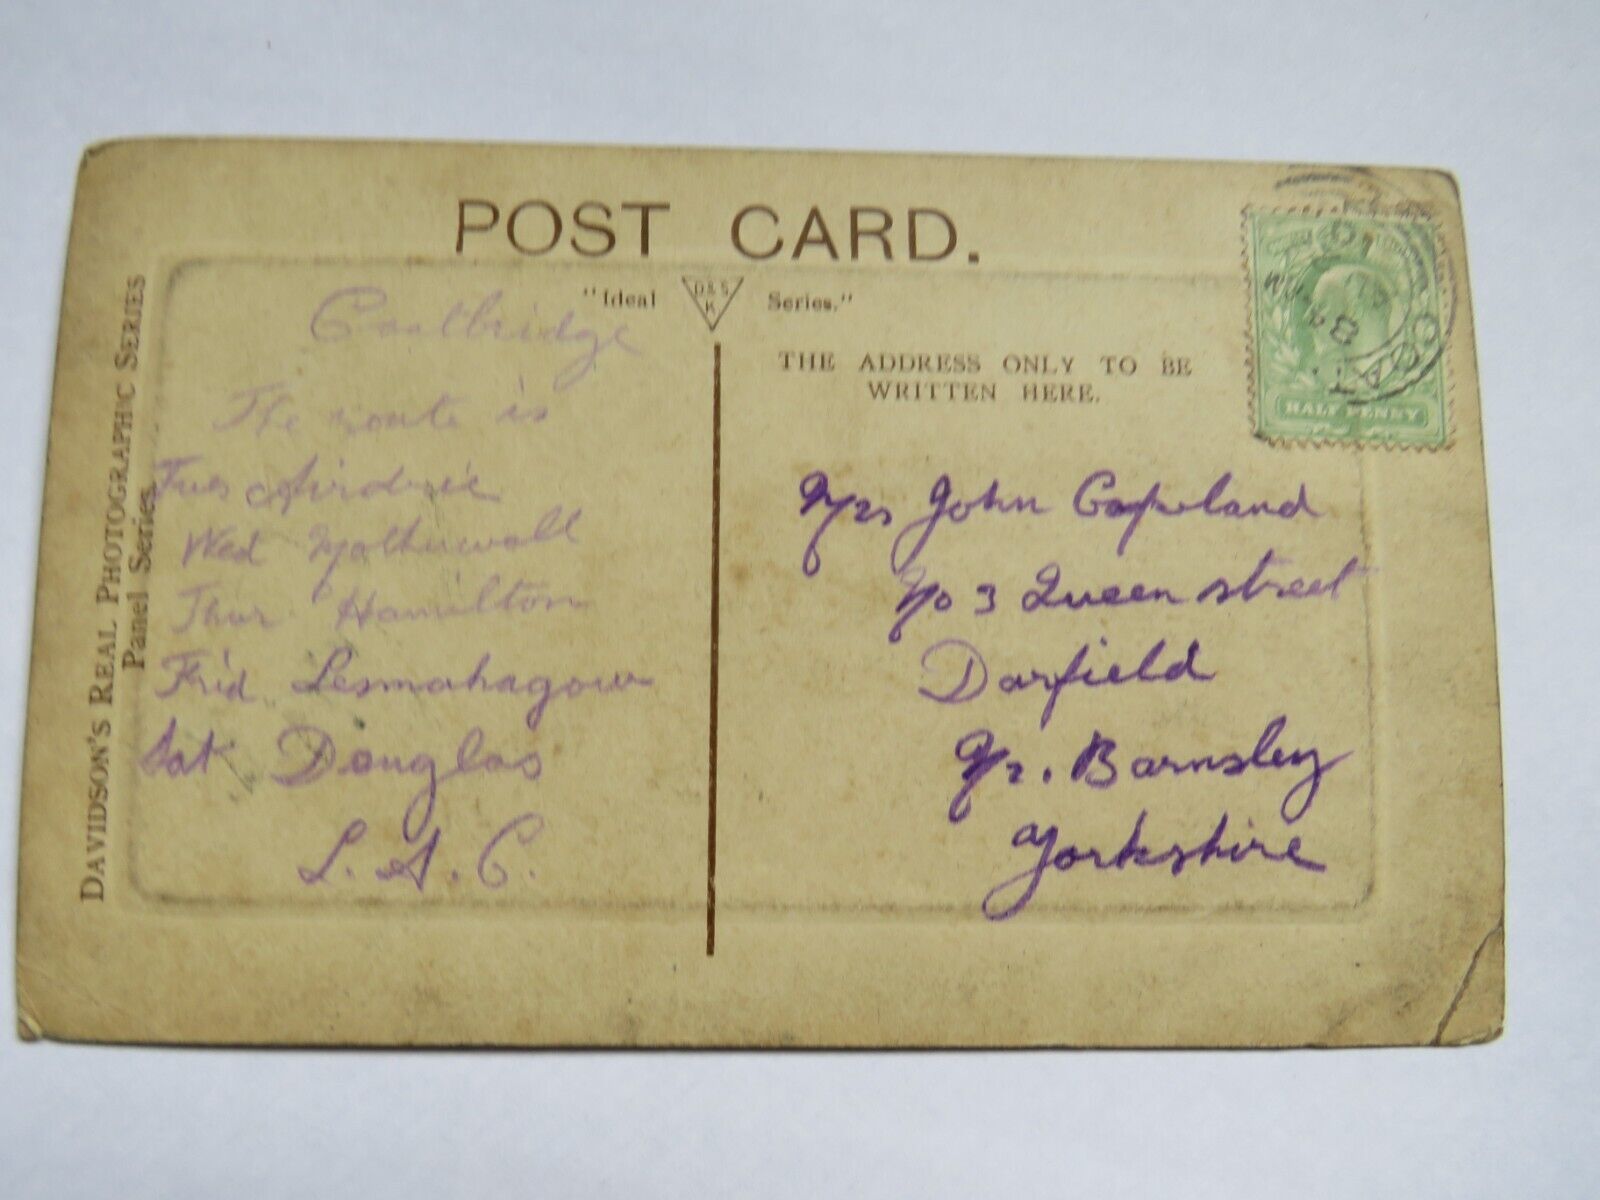 POST CARD.
"Ideal D & S K Series."
DAVIDSON'S REAL PHOTOGRAPHIC SERIES
Panel Series.
Coatbridge
The route is
Tues Airdrie
Wed Motherwell
Thur. Hamilton
Frid. Lesmahagow
Sat Douglas
L. A. C.
THE ADDRESS ONLY TO BE
WRITTEN HERE.
HALF PENNY
Mrs John Copeland
No 3 Queen street
Darfield
Nr. Barnsley
Yorkshire